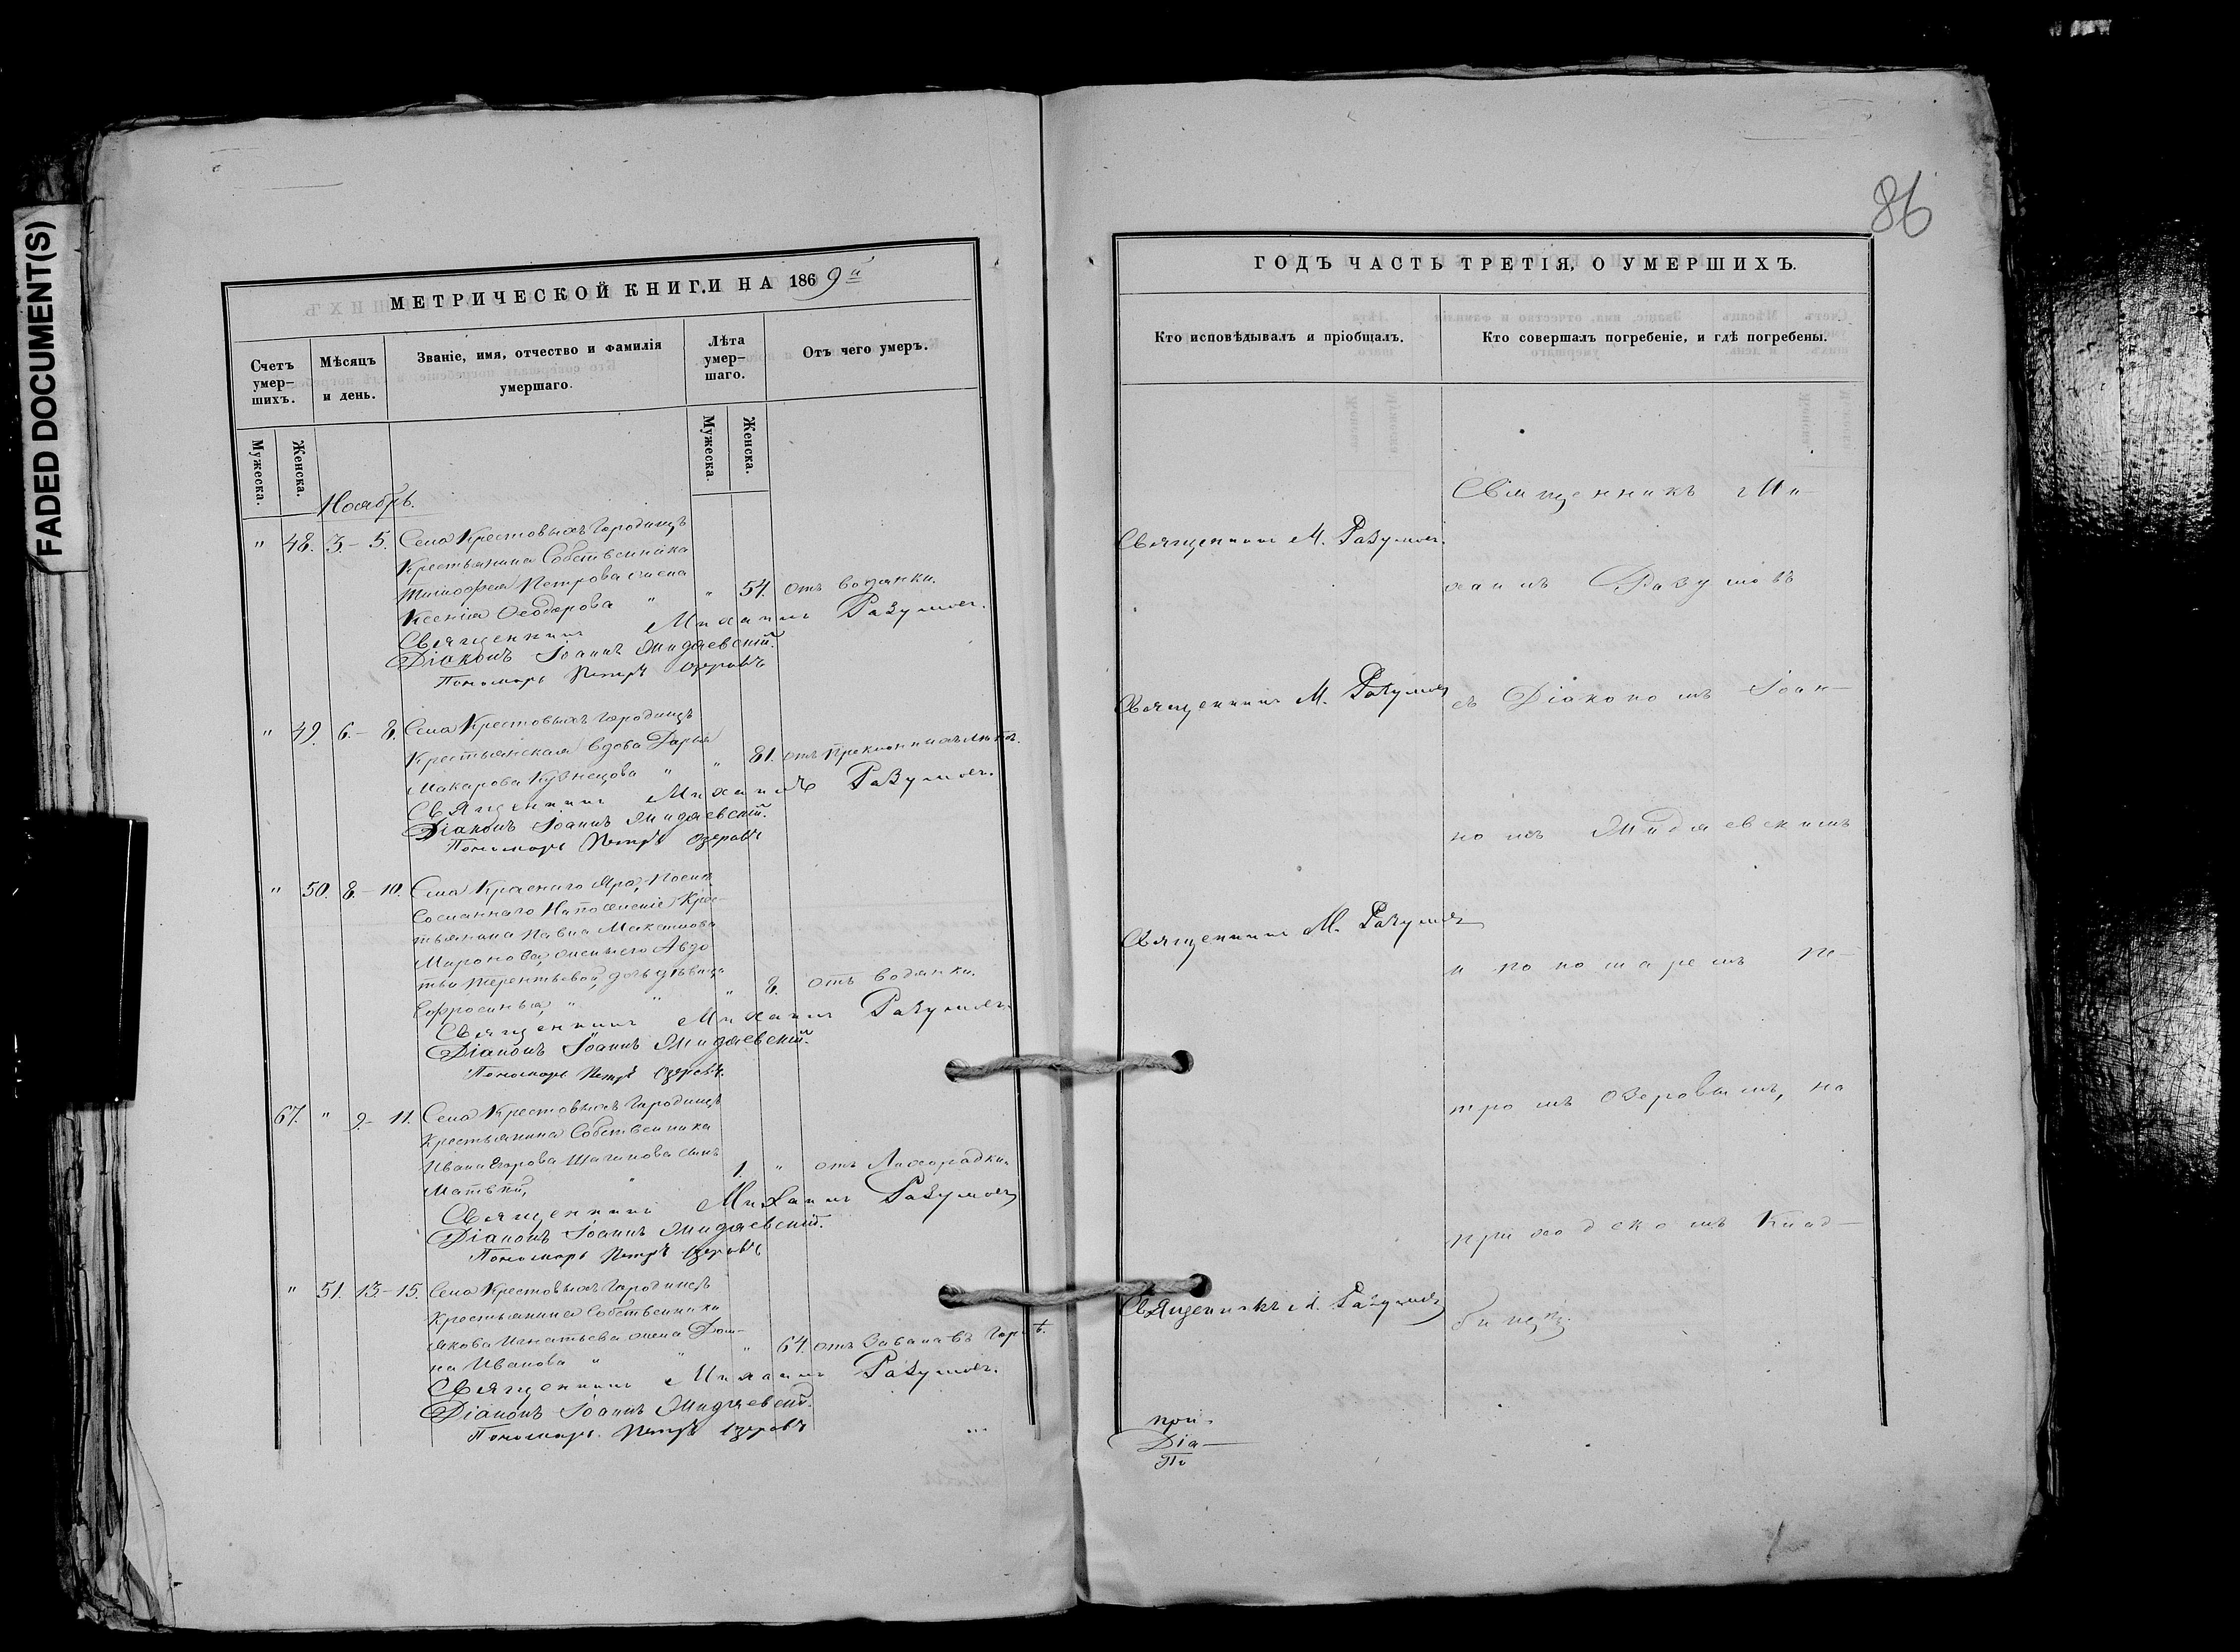 FADED DOCUMENT(S)
86
МЕТРИЧЕСКОЙ КНИГИ НА 1869й
Счетъ умер-шихъ.
Мѣсяцъ и день.
Званіе, имя, отчество и фамилія умершаго.
Лѣта умер-шаго.
Отъ чего умеръ.
Мужеска.
Женска.
Мужеска.
Женска.
Ноябрь.
" 48. 3.- 5. Села Крестовыхъ Городищъ
Крестьянина Собственника
Тимофея Петрова жена
Ксенія Ѳеодорова " " 54. отъ водянки.
Священникъ Михаилъ Разумовъ.
Діаконъ Іоаннъ
Пономарь Петръ Озеровъ
" 49. 6.- 8. Села Крестовыхъ Городищъ
Крестьянская вдова Дарья
Макарова Кузнецова " " 81. отъ преклонныхъ лѣтъ.
Священникъ Михаилъ Разумовъ.
Діаконъ Іоаннъ
Пономарь Петръ Озеровъ
" 50. 8.- 10. Села Краснаго Яра,
Крес-
тьянина Павла Максимова
Миронова, Авдо-
тьи Терентьевой, дочь дѣвица
Ефросинья, " " " 8. отъ водянки.
Священникъ Михаилъ Разумовъ.
Діаконъ Іоаннъ
Пономарь Петръ Озеровъ.
67. " 9.- 11. Села Крестовыхъ Городищъ
Крестьянина Собственника
Ивана Егорова сынъ
Матвѣй, " 1. " отъ Лихорадки.
Священникъ Михаилъ Разумовъ
Діаконъ Іоаннъ
Пономарь Петръ Озеровъ
" 51. 13.- 15. Села Крестовыхъ Городищъ
Крестьянина Собственника
Якова Игнатьева жена Дом-
на Иванова " " " 64. отъ Завала въ Горлѣ.
Священникъ Михаилъ Разумовъ.
Діаконъ Іоаннъ
Пономарь Петръ Озеровъ
ГОДЪ ЧАСТЬ ТРЕТІЯ, О УМЕРШИХЪ.
Кто исповѣдывалъ и пріобщалъ.
Кто совершалъ погребеніе, и гдѣ погребены.
Священникъ М. Разумовъ.
Священникъ М. Разумовъ
Священникъ М. Разумовъ
Священникъ М. Разумовъ
Священникъ Ми-
хаилъ Разумовъ
съ Діакономъ Іоан-
номъ
и пономаремъ Пе-
тромъ Озеровымъ, на
приходскомъ Клад-
бищѣ.
при-
Діа-
По